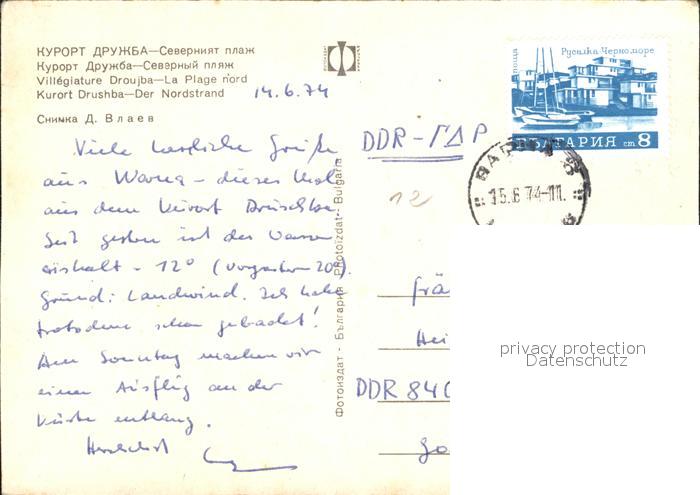 КУРОРТ ДРУЖБА—Северният плаж
Курорт Дружба—Северный пляж
Villégiature Droujba—La Plage nord
Kurort Drushba—Der Nordstrand
Снимка Д. Влаев
14.6.74
Viele herzliche Grüße
aus Warna - dieses Mal
aus dem Kurort Druschba.
Seit gestern ist das Wasser
eiskalt - 12° (vorgestern 20°).
Grund: Landwind. Ich habe
trotzdem schon gebadet!
Am Sonntag machen wir
einen Ausflug an der
Küste entlang.
Herzlichst
Фотоиздат - България Photoizdat - Bulgaria
поща
Русалка-Черноморе
БЪЛГАРИЯ ст 8
ВАРНА
15.6.74-11
DDR-ГДР
12
Frä
Hei
DDR 840
Go
privacy protection
Datenschutz